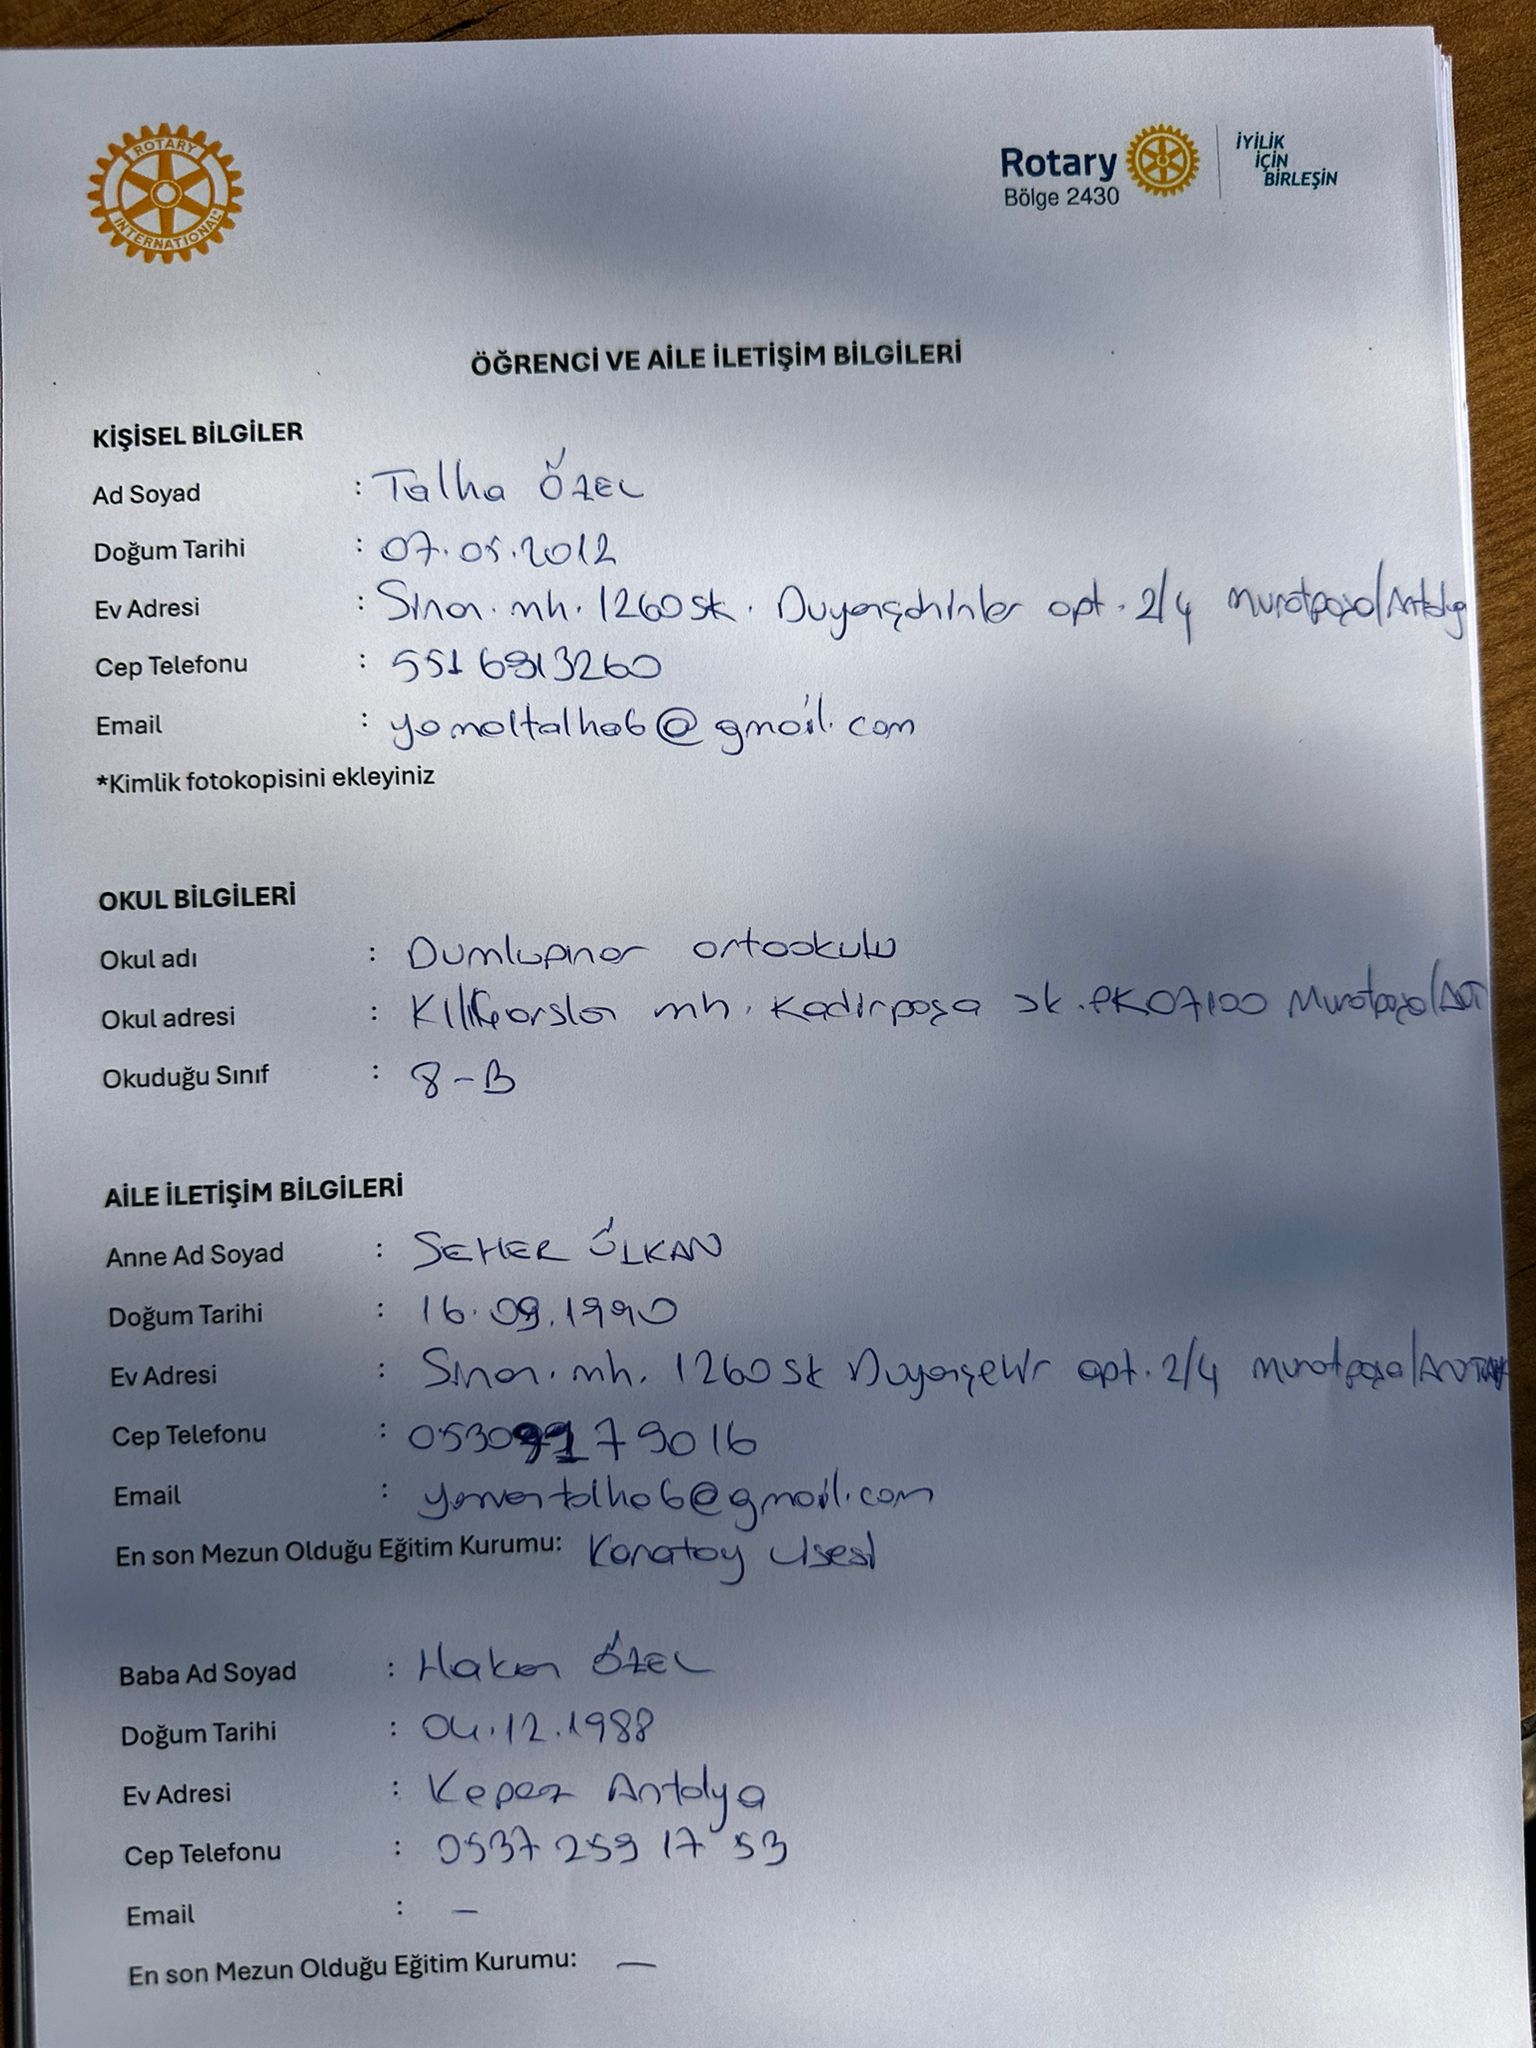 ROTARY INTERNATIONAL
Rotary
Bölge 2430
İYİLİK
İÇİN
BİRLEŞİN
ÖĞRENCİ VE AİLE İLETİŞİM BİLGİLERİ
KİŞİSEL BİLGİLER
Ad Soyad : Talha ÖZEL
Doğum Tarihi : 07.05.2012
Ev Adresi : Sinan mh. 1260 sk. apt. 2/4 Muratpaşa/Antalya
Cep Telefonu : 551 6913260
Email : @gmail.com
*Kimlik fotokopisini ekleyiniz
OKUL BİLGİLERİ
Okul adı : Dumlupınar ortaokulu
Okul adresi : Kılıçarslan mh. Kadirpaşa sk. PK07100 Muratpaşa/ANT
Okuduğu Sınıf : 8-B
AİLE İLETİŞİM BİLGİLERİ
Anne Ad Soyad : SEHER ÜLKAN
Doğum Tarihi : 16.09.1990
Ev Adresi : Sinan. mh. 1260 sk apt. 2/4 Muratpaşa/ANTALYA
Cep Telefonu :
Email : @gmail.com
En son Mezun Olduğu Eğitim Kurumu: Karatay Lisesi
Baba Ad Soyad : Hakan ÖZEL
Doğum Tarihi : 04.12.1988
Ev Adresi : Kepez Antalya
Cep Telefonu : 0537 259 17 53
Email : —
En son Mezun Olduğu Eğitim Kurumu: —